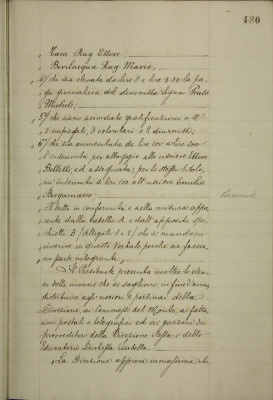 480
" Tam Rag Ettore;
" Bevilacqua Rag. Mario;
" 4º che sia elevata da lire 3 a lire 3.50 la pa-
" ga giornaliera del diurnista Signor Prato
" Michele;
" 5º che siano accordate gratificazioni a Nº
" impiegati, 3 volontari e 2 diurnisti;
" 6º che sia aumentata da lire 100 a lire 200
" l'indennità per alloggio all'usciere Ettore
" Belletti, ed assegnata per lo stesso titolo,
" un'indennità di lire 100 all'usciere Emilio
" Bergamasco;
" Il tutto in conformità e nella misura appa-
" rente dalla tabella A e dall'apposito
(Allegati 1 e 2) che si mandano
" inserire in questo verbale perchè ne faccia-
" no parte integrante.
Personale
" Il Presidente presenta inoltre lo elen-
co delle mancie che si sogliono, in fine d'anno,
distribuire agli uscieri e portinai della
Direzione, ai commessi del Monte, ai fatto-
rini postali e telegrafici ed ai garzoni dei
provveditori della Direzione stessa e dello
Educatorio Duchessa Isabella.
" La Direzione approva